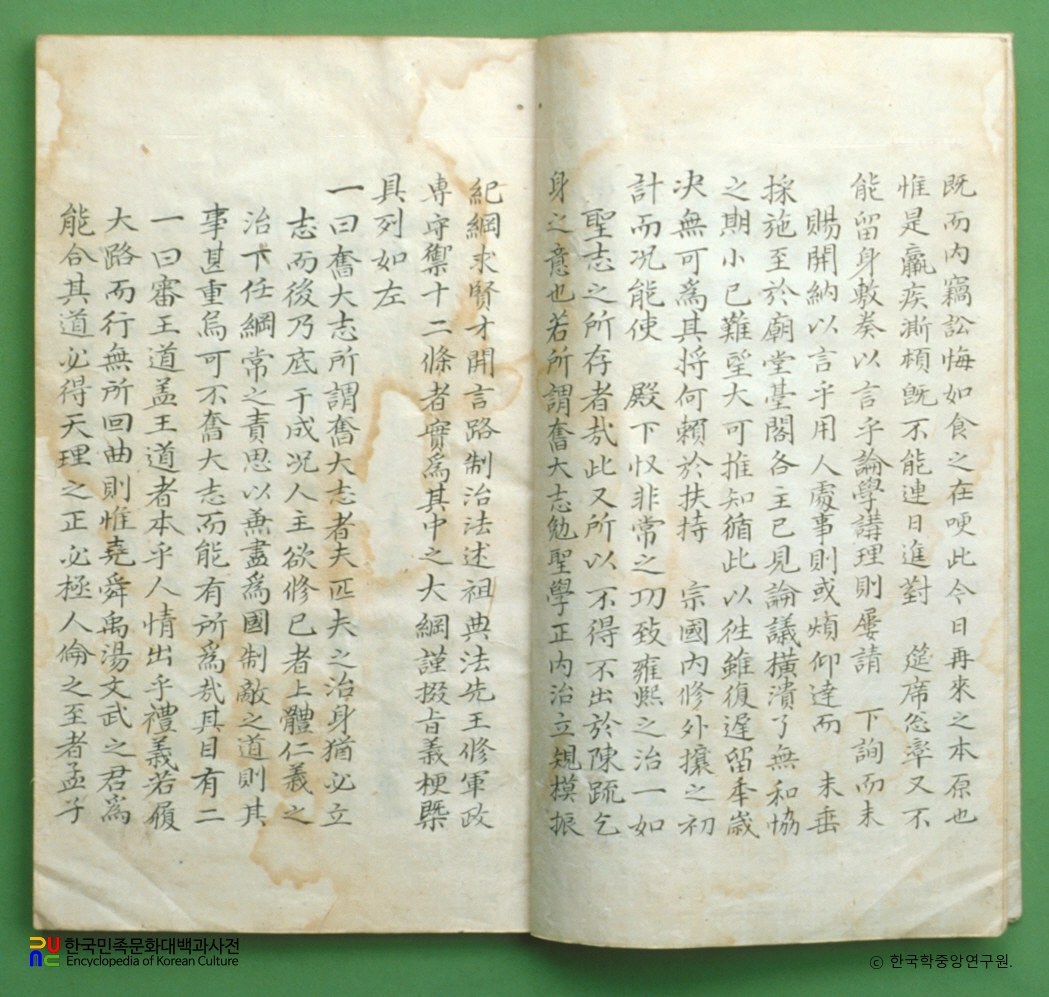 既而內竊訟悔如食之在哽此今日再來之本原也
惟是羸疾澌頓旣不能連日進對 筵席怱遽又不
能留身敷奏以言乎論學講理則屢請 下詢而未
賜開納以言乎用人處事則或煩仰達而 未垂
採施至於廟堂臺閣各主已見論議橫潰了無和協
之期小已難望大可推知循此以徃雖復遲留年歲
决無可爲其將何賴於扶持 宗國內修外攘之初
計而况能使 殿下収非常之功致雍熙之治一如
聖志之所存者㢤此又所以不得不出於陳䟽乞
身之意也若所謂奮大志勉聖學正內治立䂓模振
紀綱求賢才開言路制治法述祖典法先王修軍政
専守禦十二條者實爲其中之大綱謹掇旨義梗槩
具列如左
一曰奮大志所謂奮大志者夫匹夫之治身猶必立
志而後乃底于成况人主欲修已者上體仁義之
治下任綱常之責思以兼盡爲國制敵之道則其
事甚重烏可不奮大志而能有所爲㢤其目有二
一曰審王道盖王道者本乎人情出乎禮義若履
大路而行無所回曲則惟堯舜禹湯文武之君爲
能合其道必得天理之正必極人倫之至者孟子
한국민족문화대백과사전
Encyclopedia of Korean Culture
ⓒ 한국학중앙연구원.